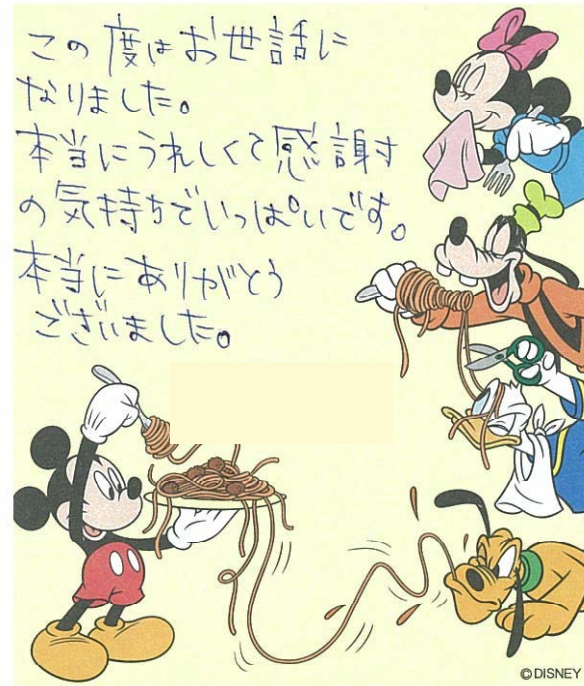 この度はお世話に
なりました。
本当にうれしくて感謝
の気持ちでいっぱいです。
本当にありがとう
ございました。
©DISNEY